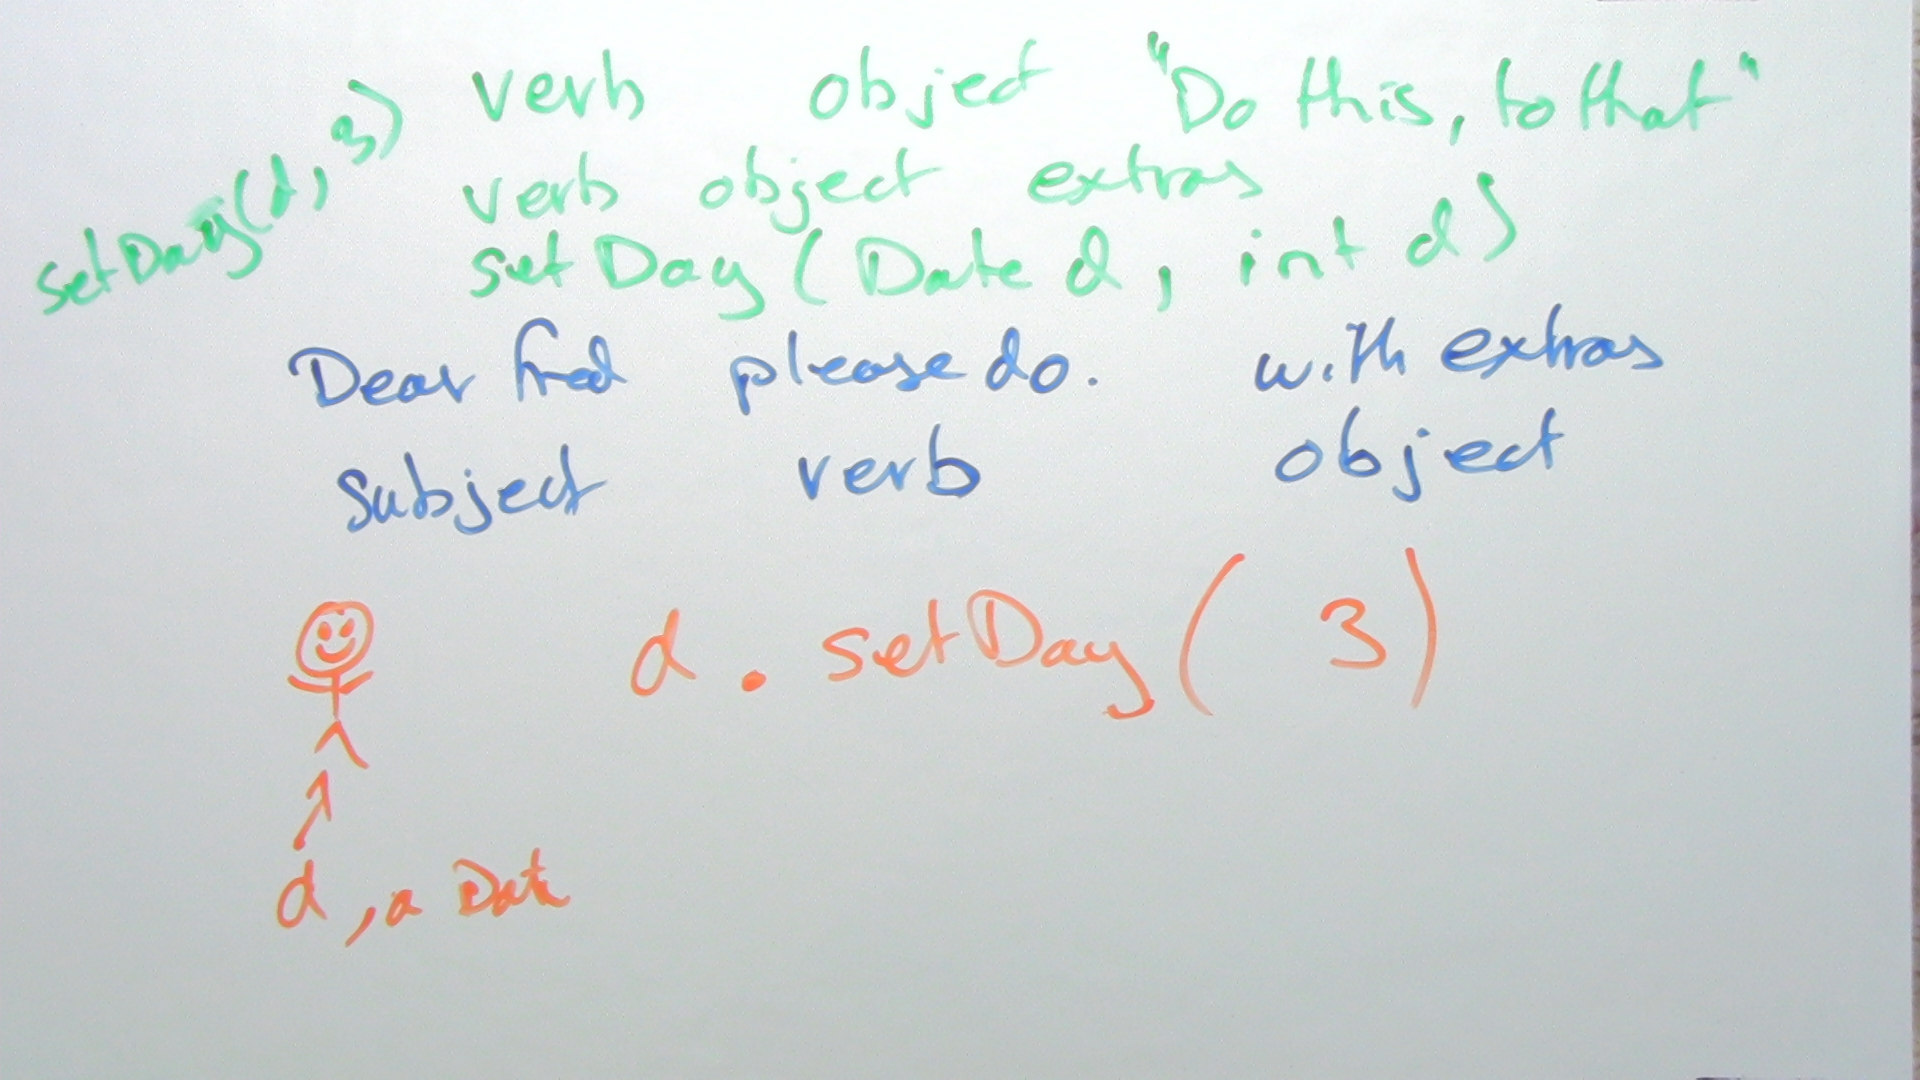 verb object "Do this, to that"
setDay(d, 3)
verb object extras
setDay (Date d, int d)
Dear fred please do. with extras
subject verb object
d . setDay ( 3 )
d, a Date